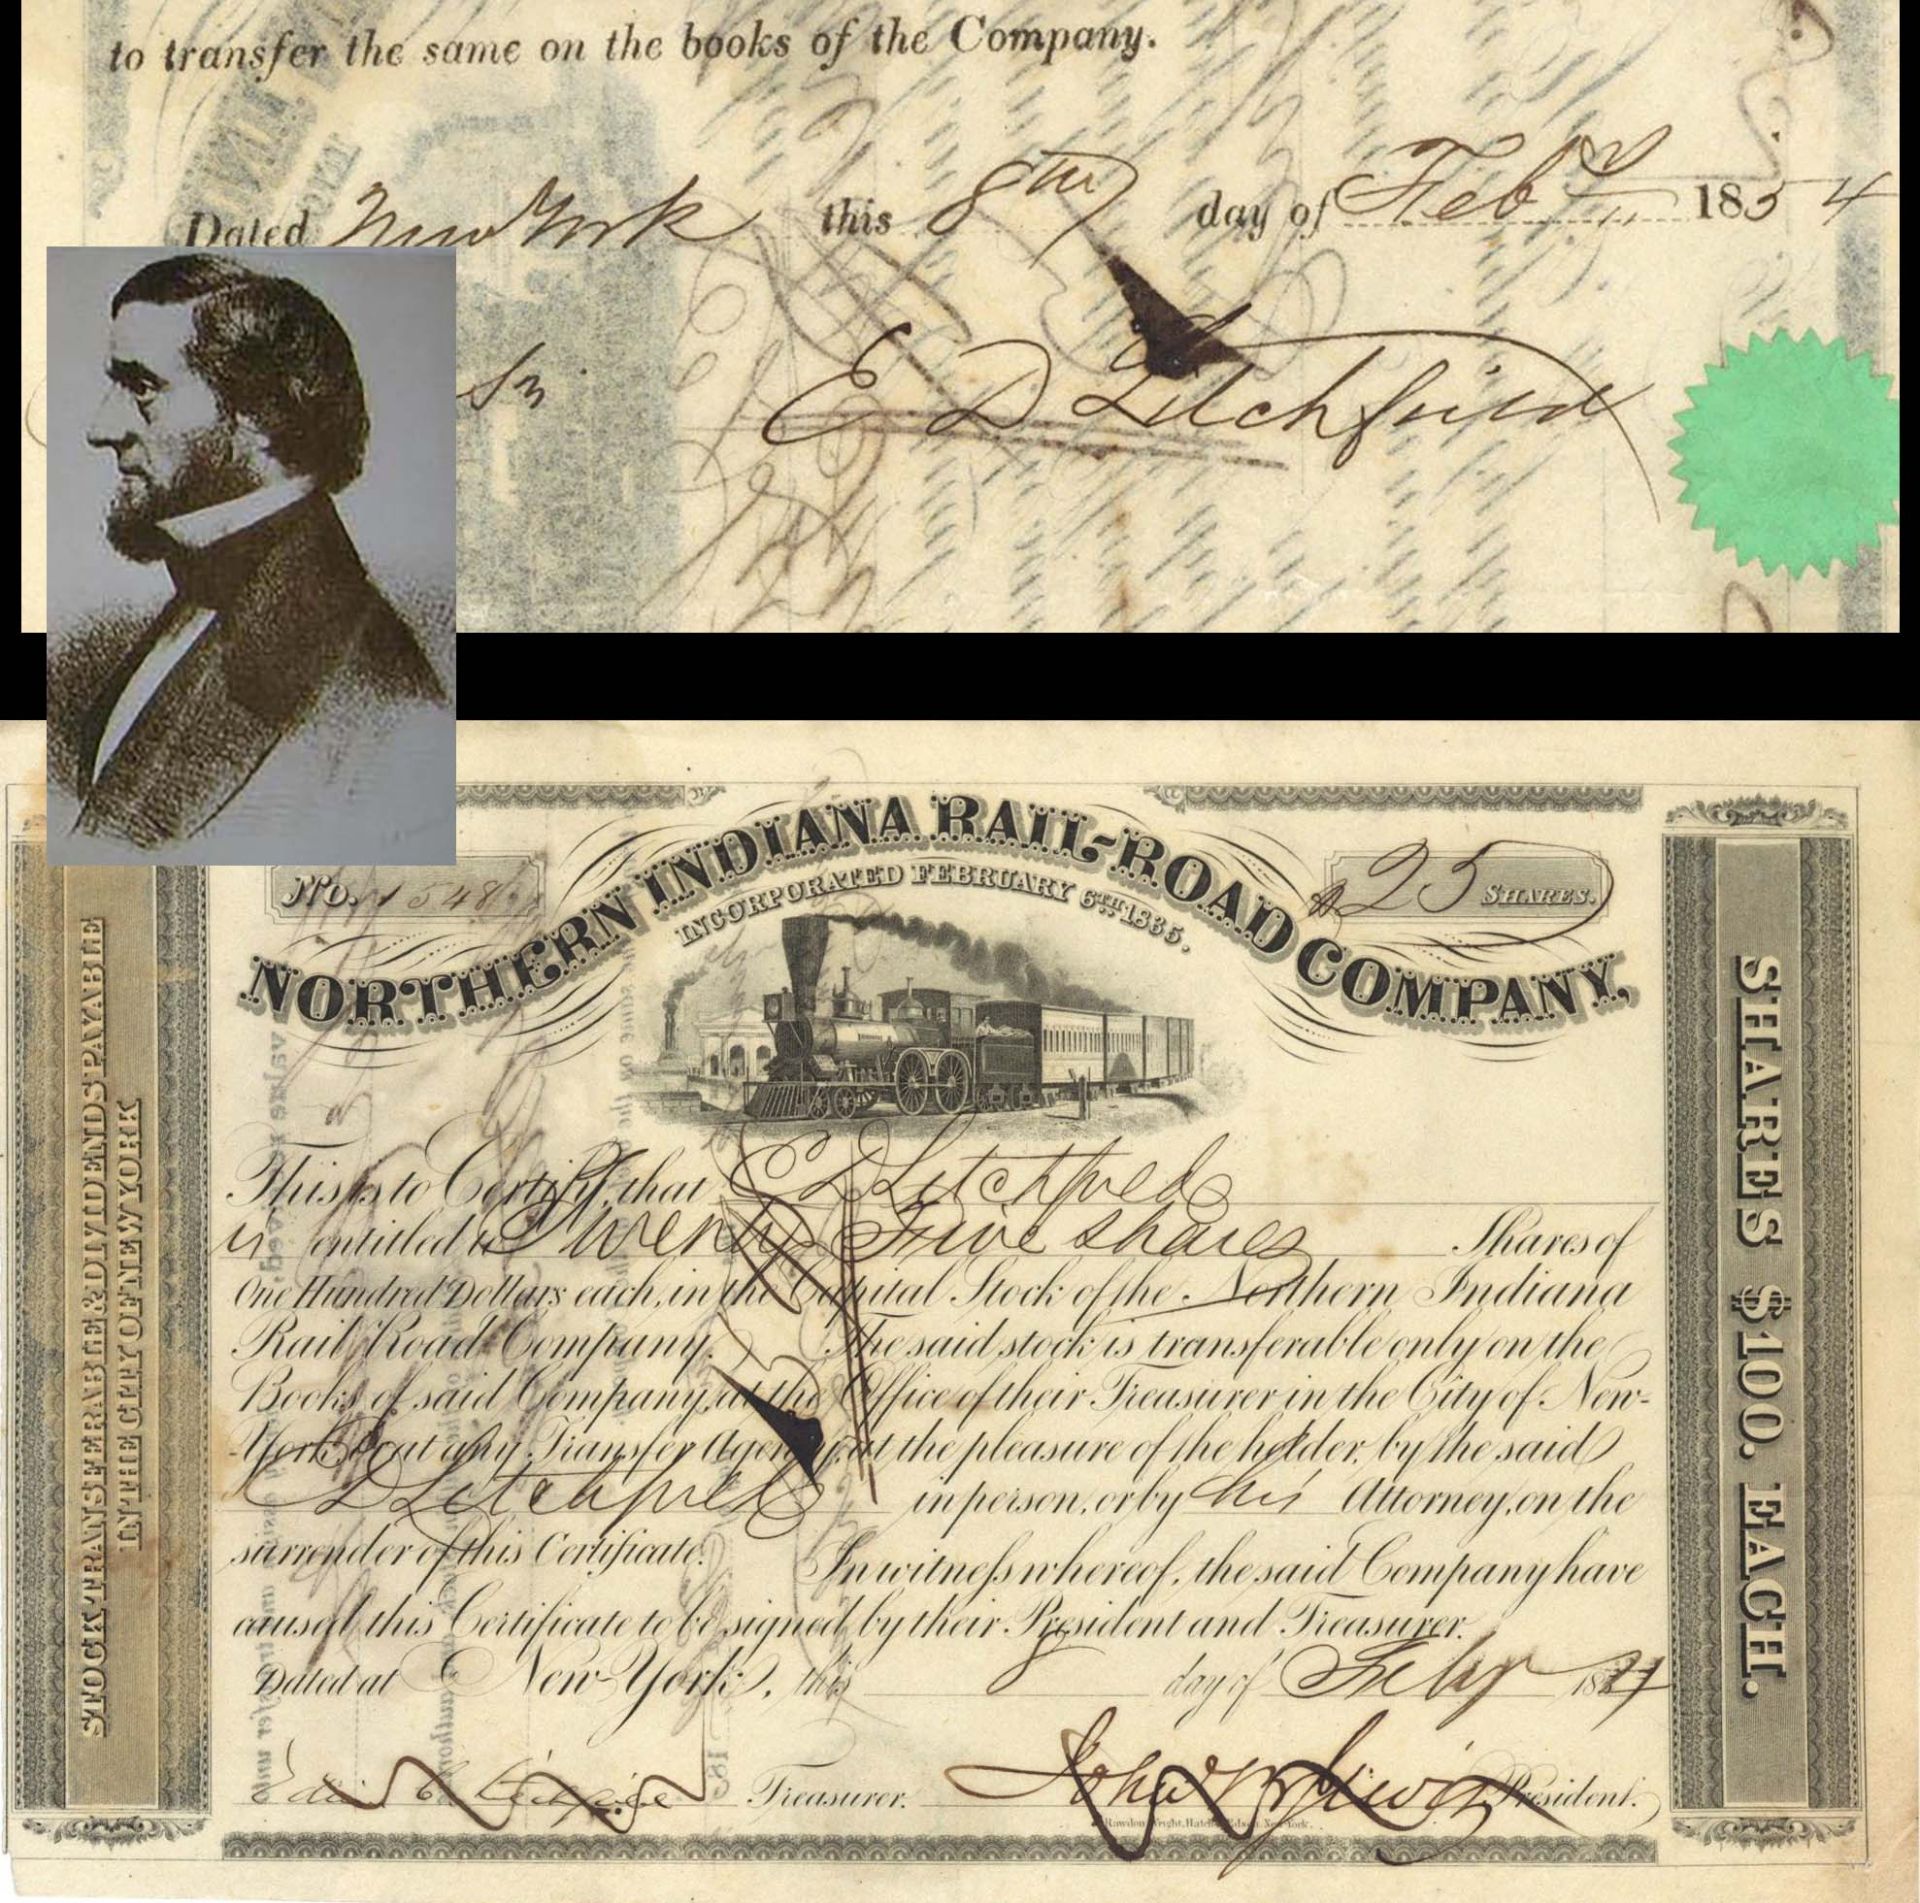 to transfer the same on the books of the Company.
Dated New York this 8th day of Feby 1854
E D Litchfield
No. 1548
25 SHARES.
NORTHERN INDIANA RAIL-ROAD COMPANY,
INCORPORATED FEBRUARY 6TH 1835.
STOCK TRANSFERABLE & DIVIDENDS PAYABLE
IN THE CITY OF NEW YORK
This is to Certify that E D Litchfield
is entitled to Twenty Five shares Shares of
One Hundred Dollars each, in the Capital Stock of the Northern Indiana
Rail Road Company. The said stock is transferable only on the
Books of said Company, at the Office of their Treasurer in the City of New-
-York or at any Transfer Agency, at the pleasure of the holder, by the said
E D Litchfield in person, or by his Attorney, on the
surrender of this Certificate. In witness whereof, the said Company have
caused this Certificate to be signed by their President and Treasurer.
Dated at New-York, this 8 day of Feby 1854
Treasurer. President.
Rawdon, Wright, Hatch & Edson, New York.
SHARES $100. EACH.